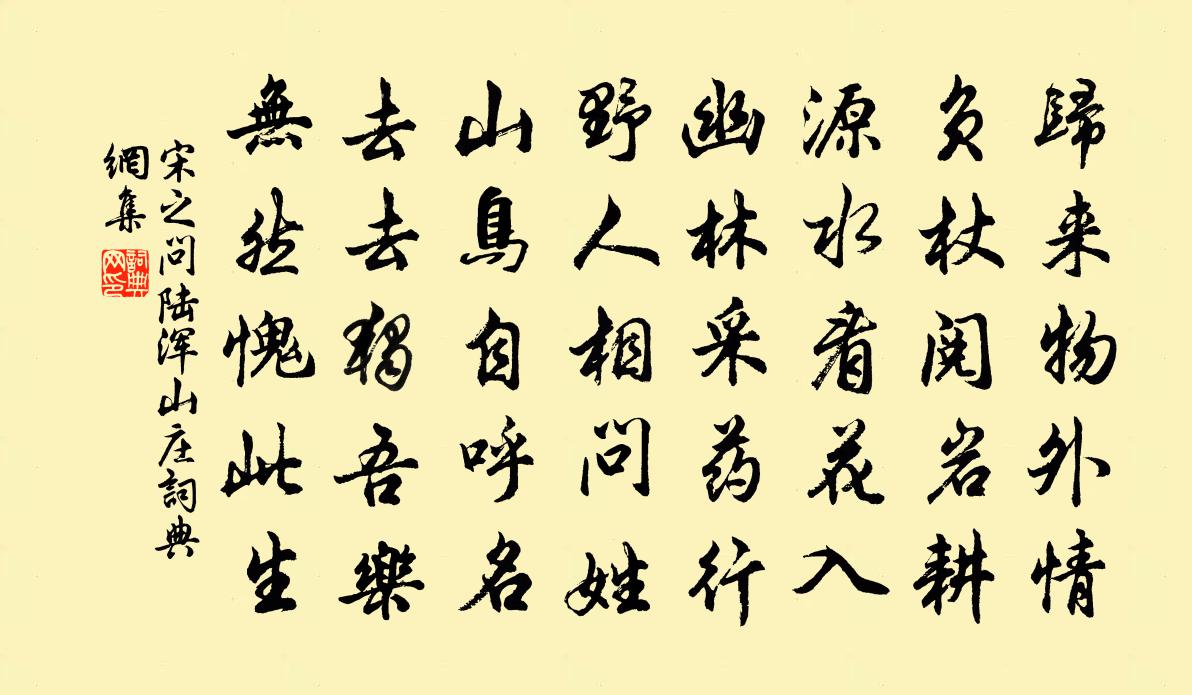 歸来物外情
负杖阅岩耕
源水看花入
幽林采药行
野人相问姓
山鳥自呼名
去去獨吾樂
無然愧此生
宋之问陆浑山庄詞典
網集
詞典
网印